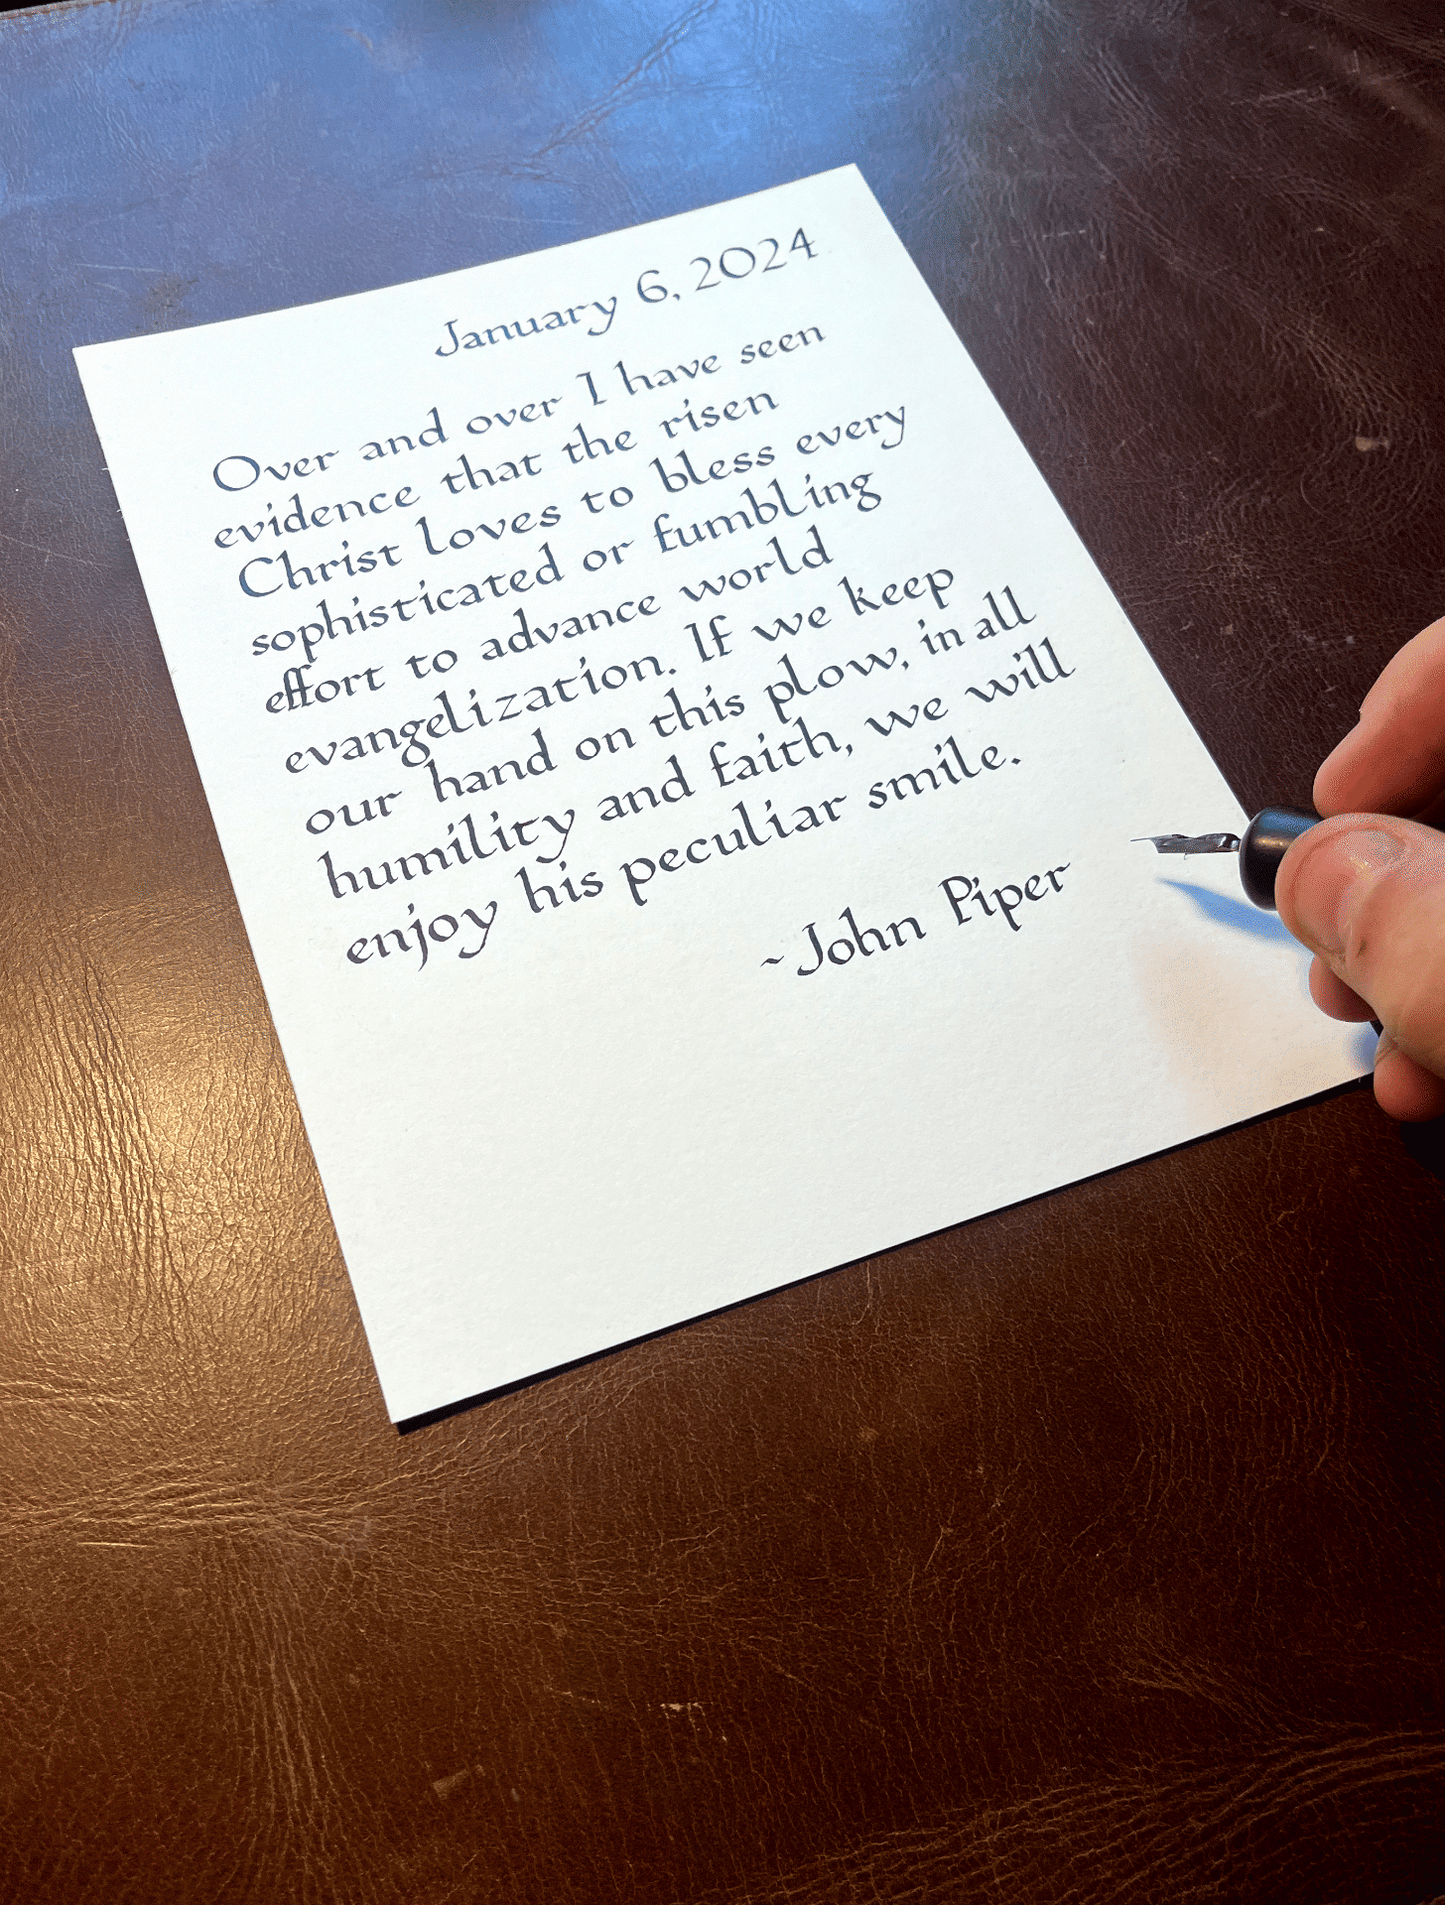 January 6, 2024
Over and over I have seen
evidence that the risen
Christ loves to bless every
sophisticated or fumbling
effort to advance world
evangelization. If we keep
our hand on this plow, in all
humility and faith, we will
enjoy his peculiar smile.
~John Piper